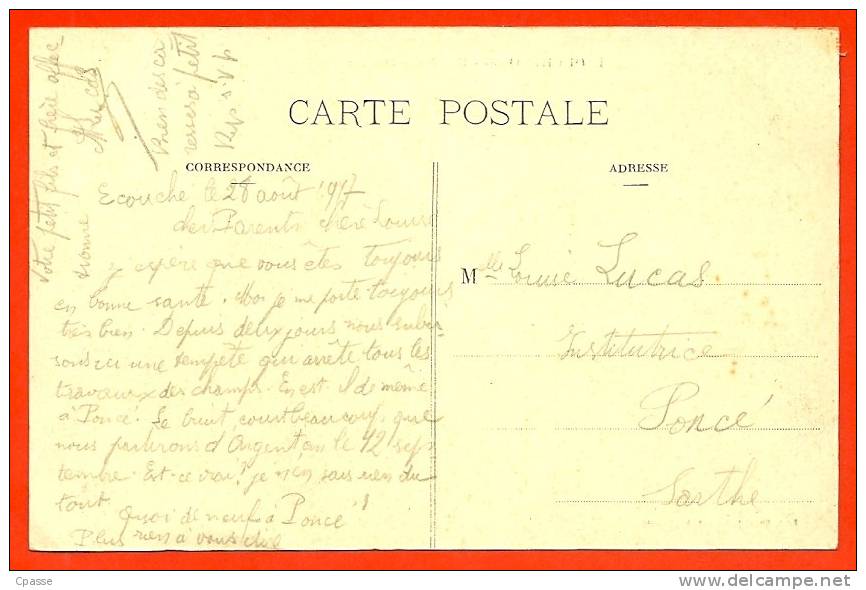 CARTE POSTALE
CORRESPONDANCE
ADRESSE
Ecouche le 28 août 1917
chers Parents chère Louise
J'espère que vous êtes toujours
en bonne santé. Moi je me porte toujours
très bien. Depuis deux jours nous subis-
sons ici une tempête qui arrête tous les
travaux des champs. En est-il de même
à Poncé. Le bruit court beaucoup que
nous partirons d'Argentan le 12 sep-
tembre. Est-ce vrai? je n'en sais rien du
tout.
Quoi de neuf à Poncé?
Plus rien à vous dire
Votre petit fils et frère affec-
tionné
Lucas
petit
Mlle Louise Lucas
Institutrice
Poncé
Sarthe
Cpasse
delcampe.net